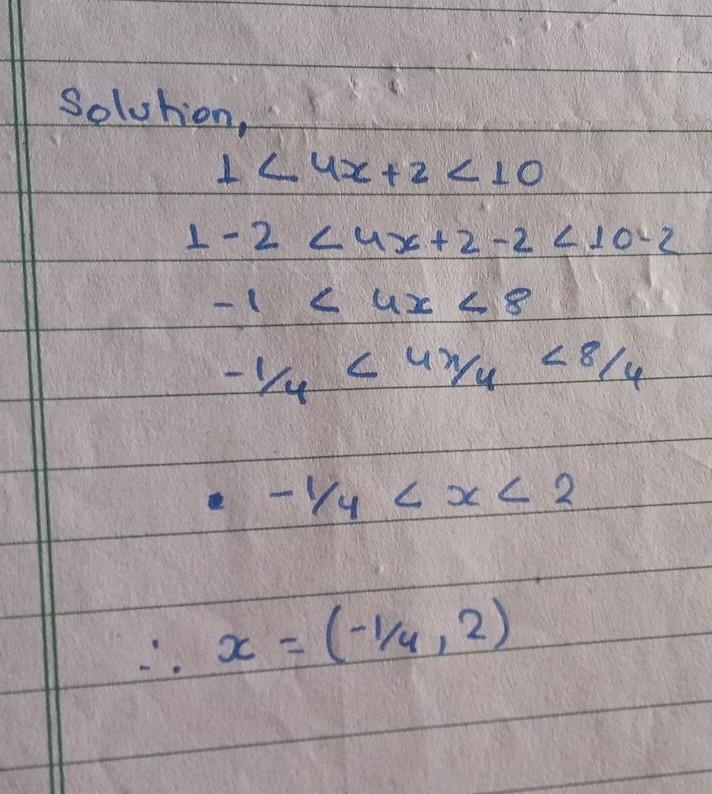 Solution,
1 < 4x + 2 < 10
1 - 2 < 4x + 2 - 2 < 10 - 2
-1 < 4x < 8
-1/4 < 4x/4 < 8/4
• -1/4 < x < 2
∴ x = (-1/4, 2)